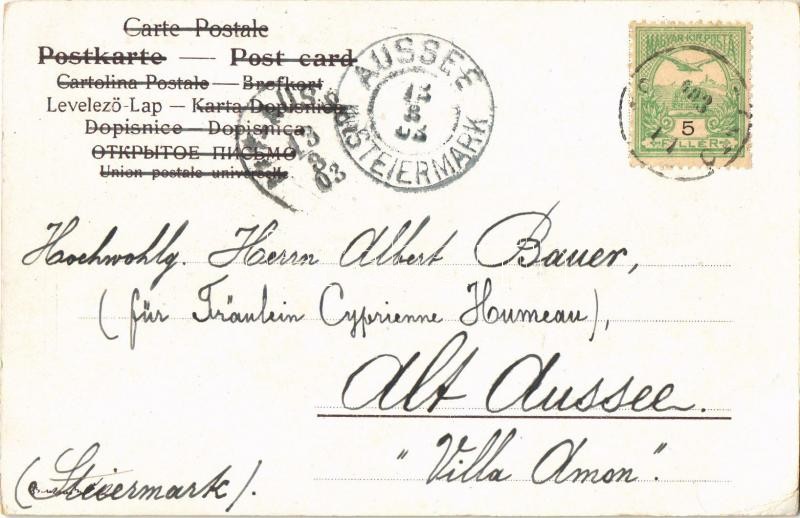 Carte Postale
Postkarte — Post card
Cartolina Postale — Brefkort
Levelező-Lap — Karta Dopisnicz
Dopisnice — Dopisnica
ОТКРЫТОЕ ПИСЬМО
Union postale universelle
AUSSEE
STEIERMARK
13
8
03
MAGYAR KIR. POSTA
5
FILLÉR
Hochwohlg. Herrn Albert Bauer,
(für Fräulein Cyprienne Humeau),
Alt Aussee.
"Villa Amon".
(Steiermark).